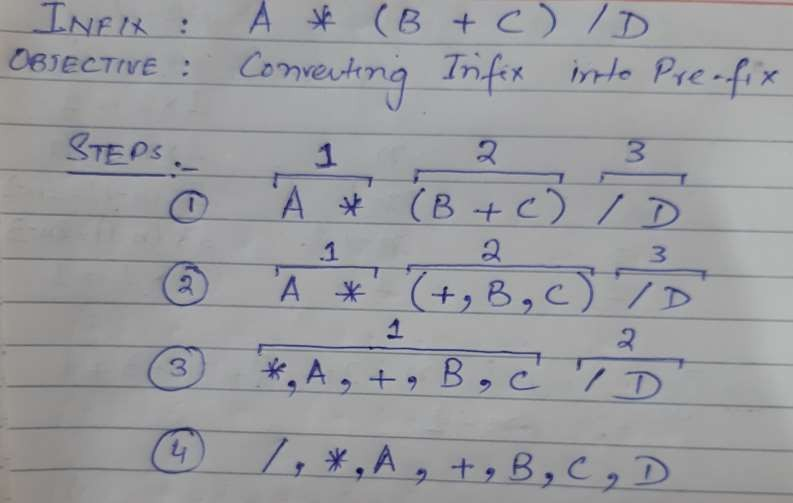 INFIX : A * (B + C) / D
OBJECTIVE : Converting Infix into Pre-fix
STEPS :-
1 2 3
① A * (B + C) / D
1 2 3
② A * (+, B, C) / D
1 2
③ *, A, +, B, C / D
④ /, *, A, +, B, C, D